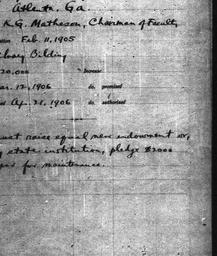 Atlanta, Ga.
K.G. Matheson, Chairman of Faculty
Feb 11, 1905
Library Bilding
20.000 Increase
Mar. 12, 1906 do. promised
Apr. 21, 1906 do. authorized
must raise equal new endowment or,
state institution, pledge $2000
year for maintenance.